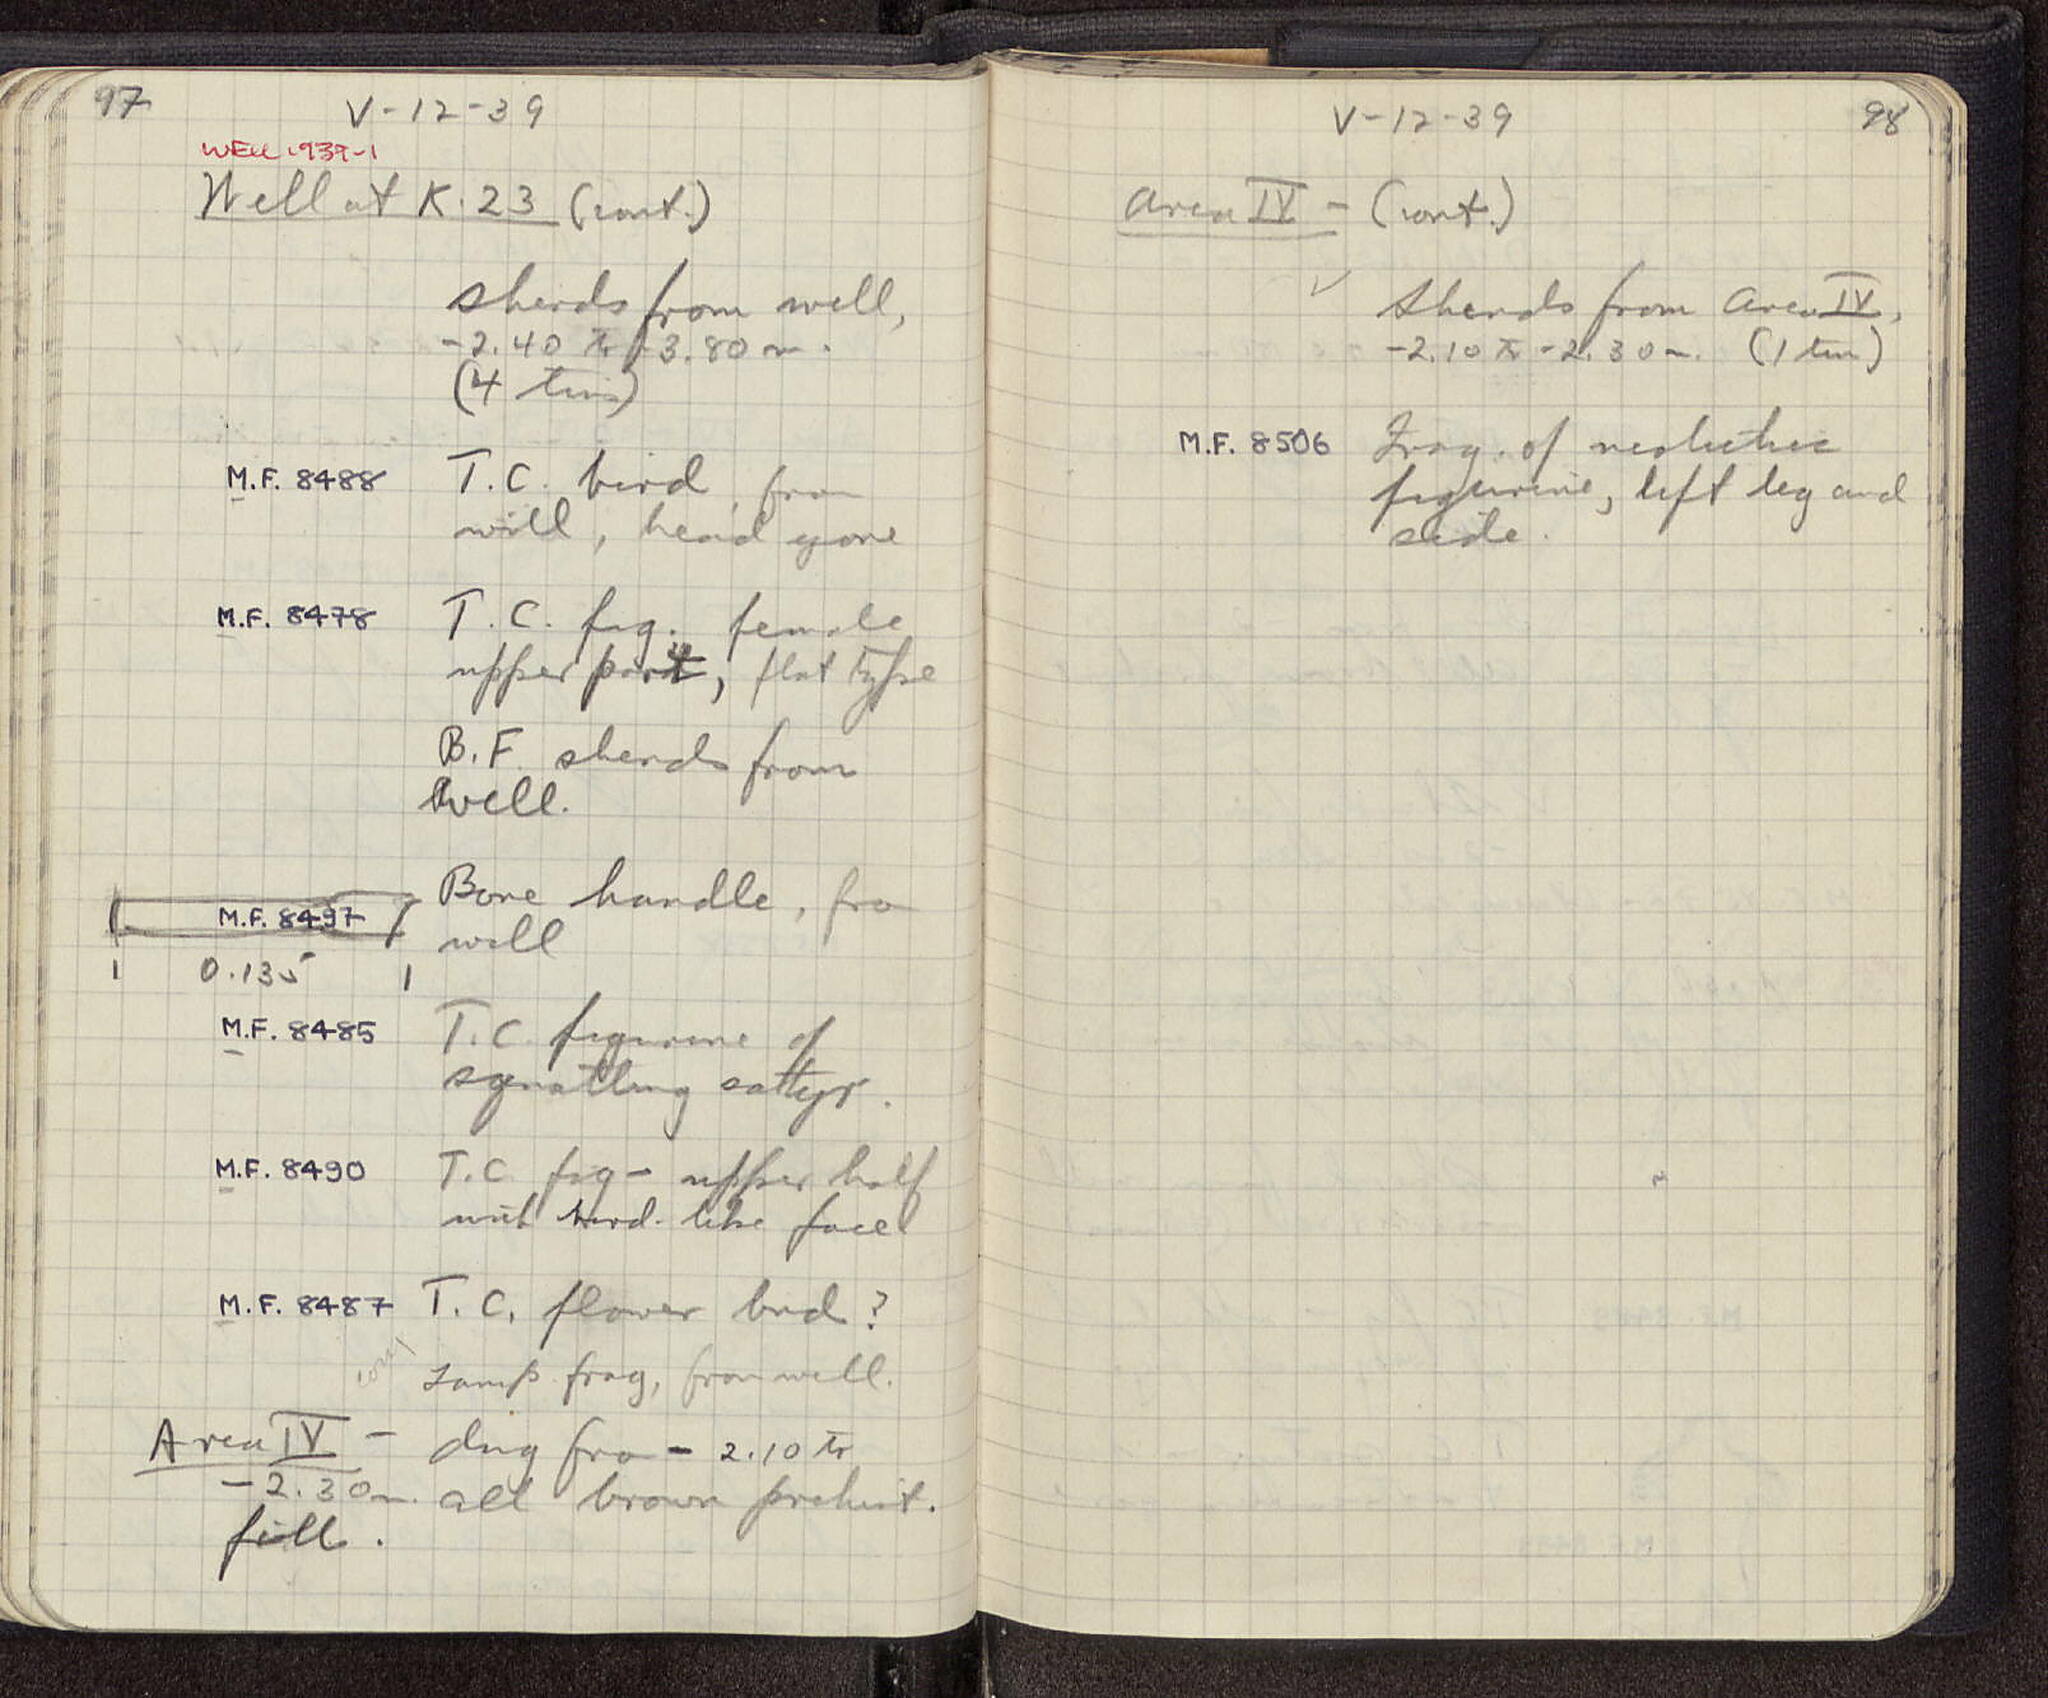 97
V-12-39
WELL 1939-1
Well at K.23 (cont.)
sherds from well,
-2.40 to -3.80 m.
(4 tins)
M.F. 8488 T.C. bird, from
well, head gone
M.F. 8478 T.C. fig. female
upper part, flat type
B.F. sherds from
well.
M.F. 8497 Bone handle, fro
well
0.135
M.F. 8485 T.C. figurine of
squatting satyr.
M.F. 8490 T.C. fig - upper half
with bird-like face
M.F. 8487 T.C. flower bud?
Lamp frag, from well.
Area IV - dug fro - 2.10 to
-2.30 m. all brown prehist.
fill.
V-12-39
98
Area IV - (cont.)
Sherds from Area IV,
-2.10 to -2.30 m. (1 tin)
M.F. 8506 Frag. of neolithic
figurine, left leg and
side.